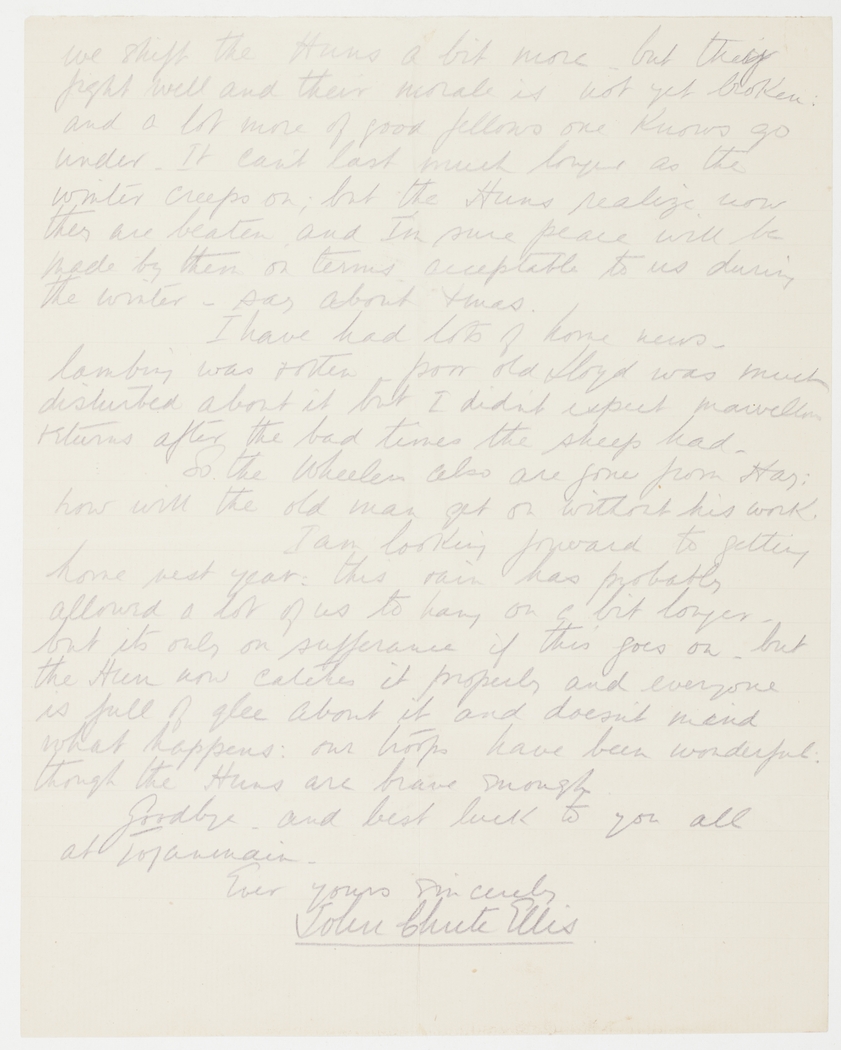 we shift the Huns a bit more - but they
fight well and their morale is not yet broken:
and a lot more of good fellows one knows go
under - It can't last much longer as the
winter creeps on; but the Huns realize now
they are beaten and I'm sure peace will be
made by them on terms acceptable to us during
the winter - say about Xmas.
I have had lots of home news -
lambing was rotten poor old Lloyd was much
disturbed about it but I didn't expect marvellous
returns after the bad times the sheep had -
So the Wheelers also are gone from Hay:
how will the old man get on without his work.
I am looking forward to getting
home next year: this rain has probably
allowed a lot of us to hang on a bit longer -
but its only on sufferance if this goes on - but
the Hun now catches it properly and everyone
is full of glee about it and doesn't mind
what happens: our troops have been wonderful:
though the Huns are brave enough
Goodbye - and best luck to you all
at
Ever yours sincerely
John Chute Ellis